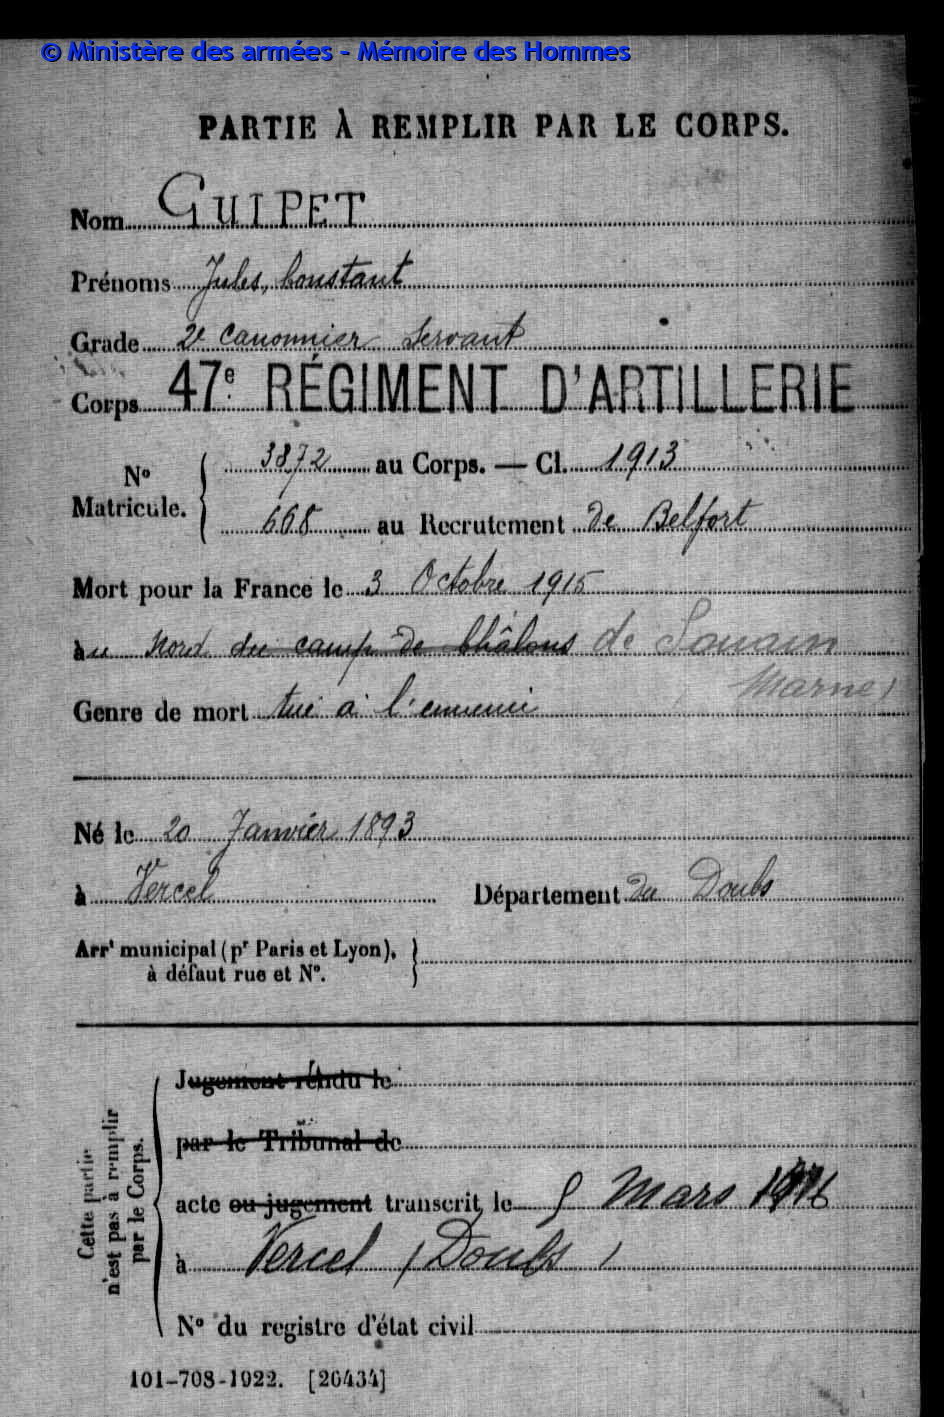 © Ministère des armées - Mémoire des Hommes
PARTIE À REMPLIR PAR LE CORPS.
Nom GUIPET
Prénoms Jules, Constant
Grade 2e Canonnier Servant
Corps 47e RÉGIMENT D'ARTILLERIE
No Matricule. { 3872 au Corps. — Cl. 1913
668 au Recrutement de Belfort
Mort pour la France le 3 Octobre 1915
au Nord du camp de Châlons de Souain
(Marne)
Genre de mort tué à l'ennemi
Né le 20 Janvier 1893
à Vercel Département du Doubs
Arrt municipal (pr Paris et Lyon),
à défaut rue et No.
Cette partie n'est pas à remplir par le Corps.
Jugement rendu le
par le Tribunal de
acte ou jugement transcrit le 5 Mars 1916
à Vercel (Doubs)
No du registre d'état civil
101-708-1922. [26434]